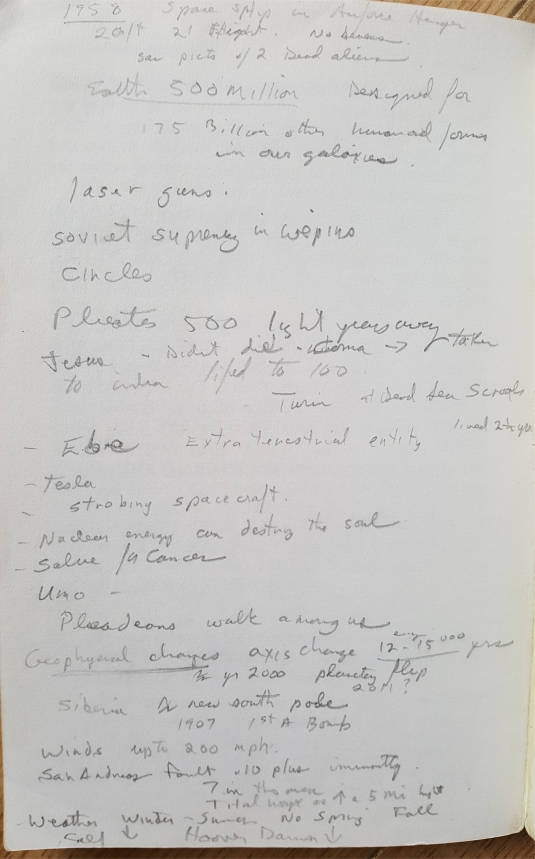 1958 Space ship in Airforce Hanger
20 ft 2' Height. No
saw picts of 2 Dead aliens
Earth 500 million Designed for
175 Billion other humanoid forms
in our galaxies.
laser guns.
soviet supremcy in wepins
Circles
Pleates 500 light years away
Jesus - Didnt die - coma → taken
to india lifed to 100
Turin Dead Sea Scrools
- Ebe Extra terestrial entity
- Tesla
- strobing spacecraft.
- Nuclear energy can destroy the soul
- Salve for Cancer
Umo -
Pleadeans walk among us
Geophysical changes axis change every 12-15000 yrs
yr 2000 planetary flip
2011?
Siberia new south pole
1907 1st A Bomb
Winds up to 200 mph.
San Andreas fault 10 plus
7 in the
Tital 5 mi
- Weather Winter - Summer No Spring Fall
↓ Hoover Damn ↓